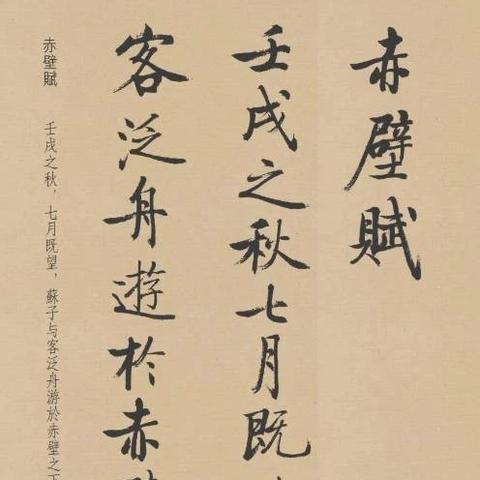 赤壁賦
壬戌之秋七月既
客泛舟遊於赤
赤壁賦　壬戌之秋，七月既望，蘇子与客泛舟游於赤壁之下